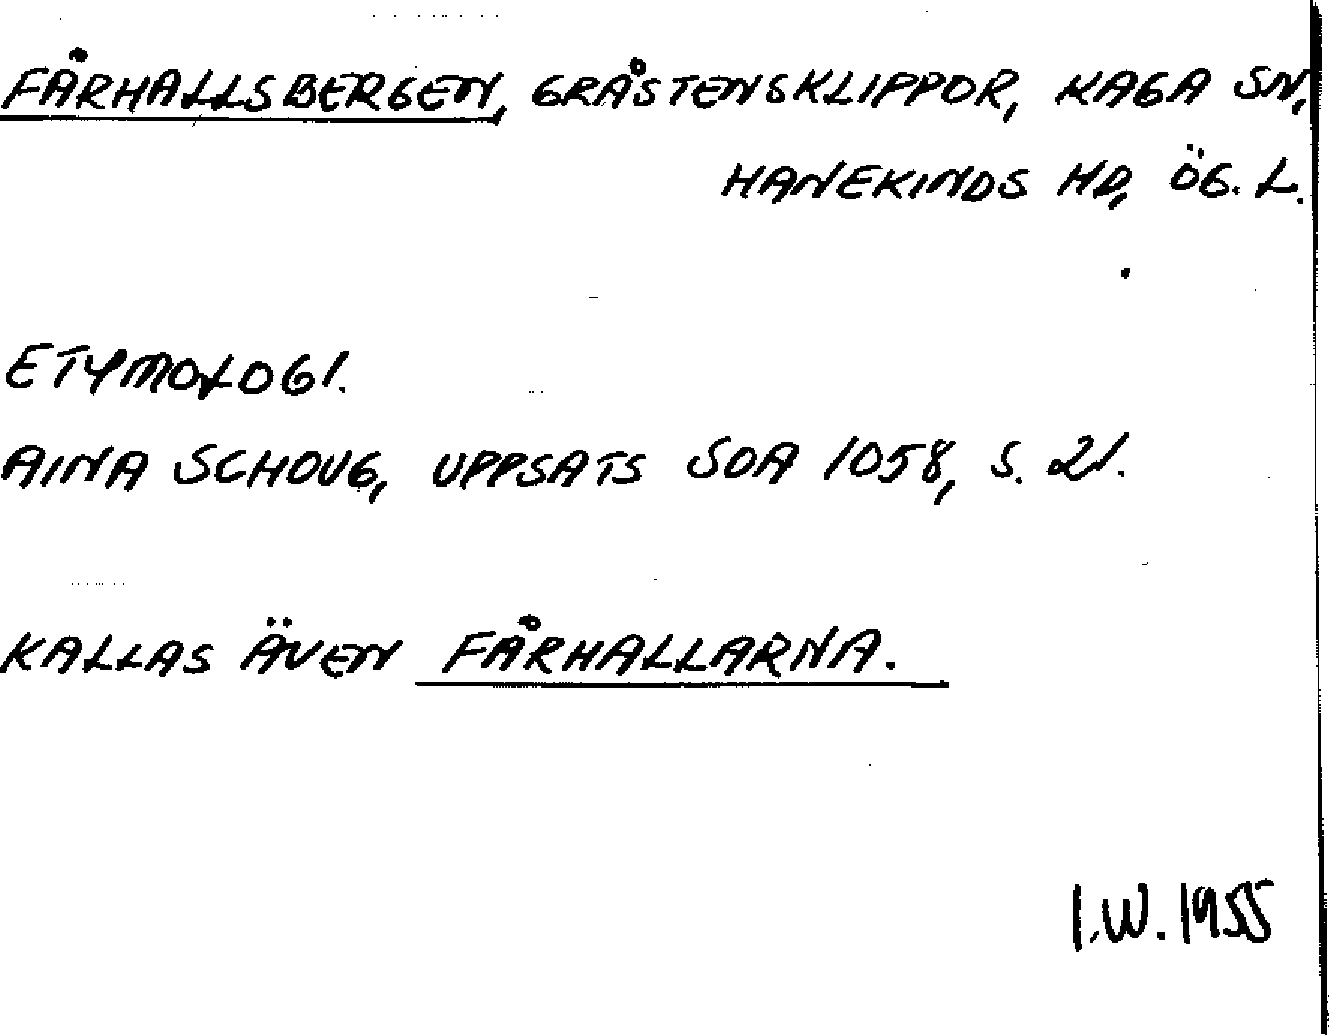 FÅRHALLSBERGEN, GRÅSTENSKLIPPOR, KAGA SN,
HANEKINDS HD, ÖG. L.
ETYMOLOGI.
AINA SCHOUG, UPPSATS SOA 1058, S. 21.
KALLAS ÄVEN FÅRHALLARNA.
I.W. 1955